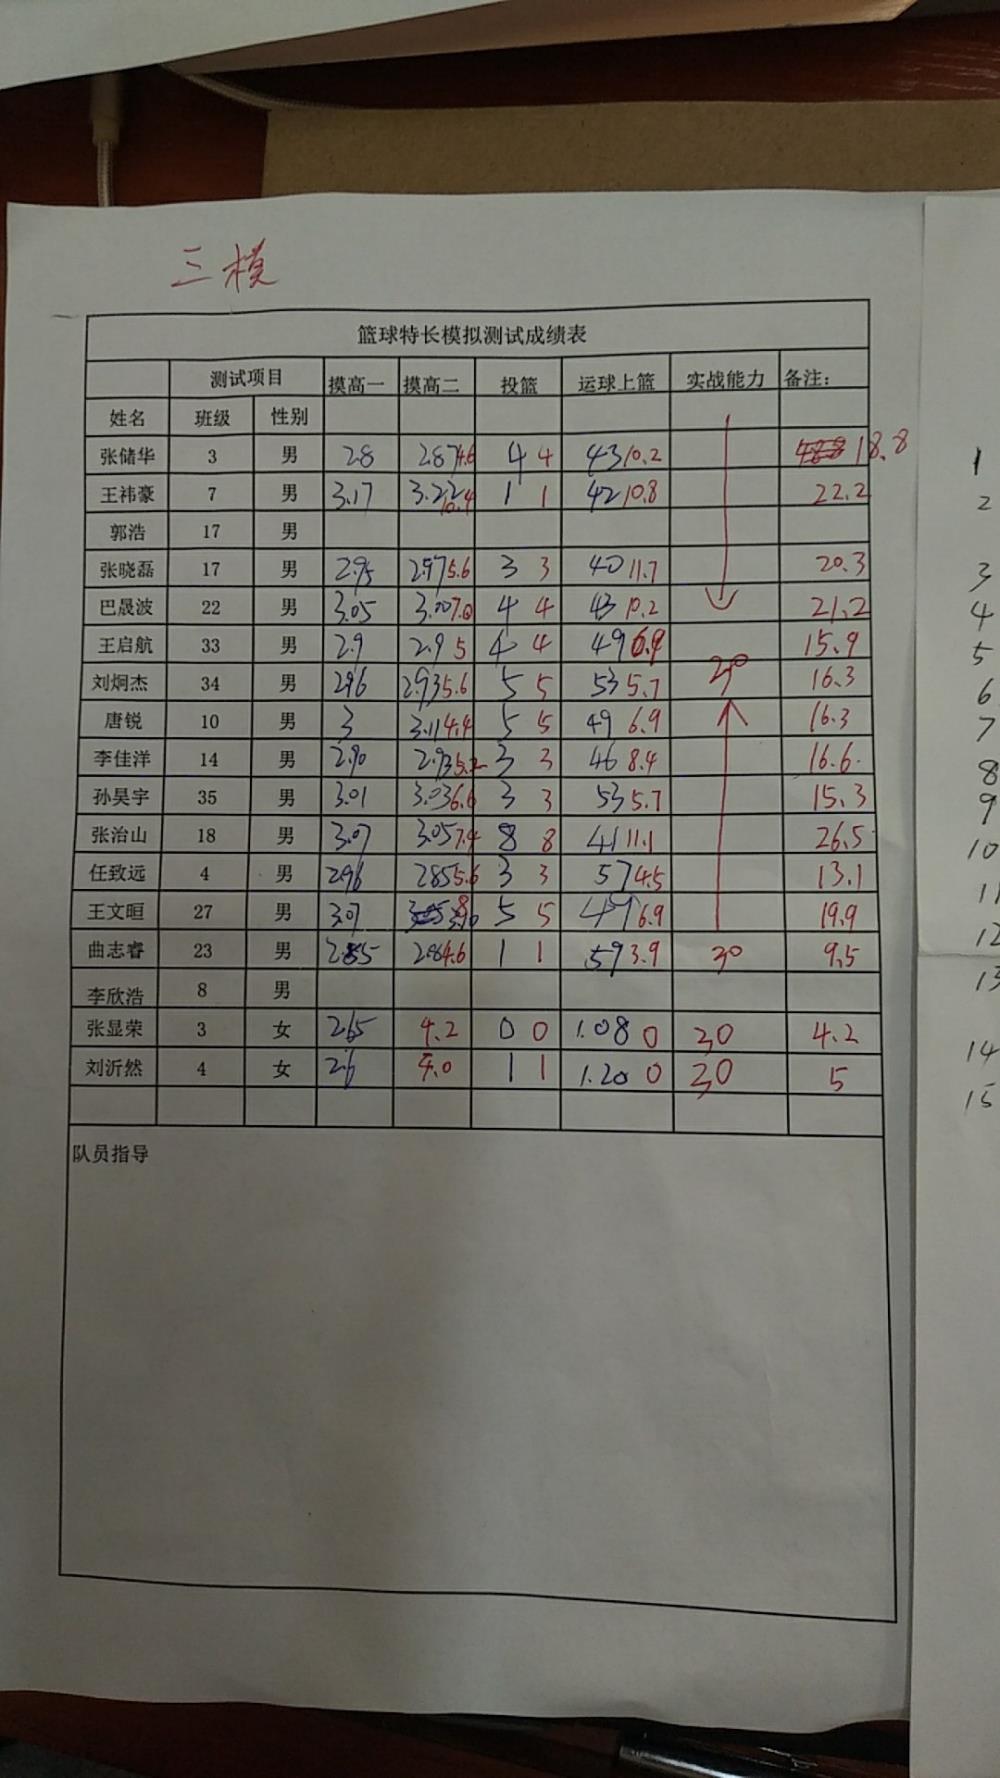 三模
篮球特长模拟测试成绩表
测试项目 摸高一 摸高二 投篮 运球上篮 实战能力 备注：
姓名 班级 性别
张储华 3 男 2.8 2.87 4.6 4 4 43 10.2 18.8
王祎豪 7 男 3.17 3.22 10.4 1 1 42 10.8 22.2
郭浩 17 男
张晓磊 17 男 2.95 2.97 5.6 3 3 40 11.7 20.3
巴晟波 22 男 3.05 3.00 7.0 4 4 43 10.2 21.2
王启航 33 男 2.9 2.9 5 4 4 49 6.9 15.9
刘炯杰 34 男 2.96 2.93 5.6 5 5 53 5.7 30 16.3
唐锐 10 男 3 3.11 4.4 5 5 49 6.9 16.3
李佳洋 14 男 2.90 2.93 5.2 3 3 46 8.4 16.6
孙昊宇 35 男 3.01 3.03 6.6 3 3 53 5.7 15.3
张治山 18 男 3.07 3.05 7.4 8 8 41 11.1 26.5
任致远 4 男 2.96 2.85 5.6 3 3 57 4.5 13.1
王文晅 27 男 3.07 3.10 8 5 5 49 6.9 19.9
曲志睿 23 男 2.85 2.84 4.6 1 1 59 3.9 30 9.5
李欣浩 8 男
张显荣 3 女 2.65 4.2 0 0 1.08 0 30 4.2
刘沂然 4 女 2.6 4.0 1 1 1.20 0 30 5
队员指导
1
2
3
4
5
6
7
8
9
10
11
12
13
14
15